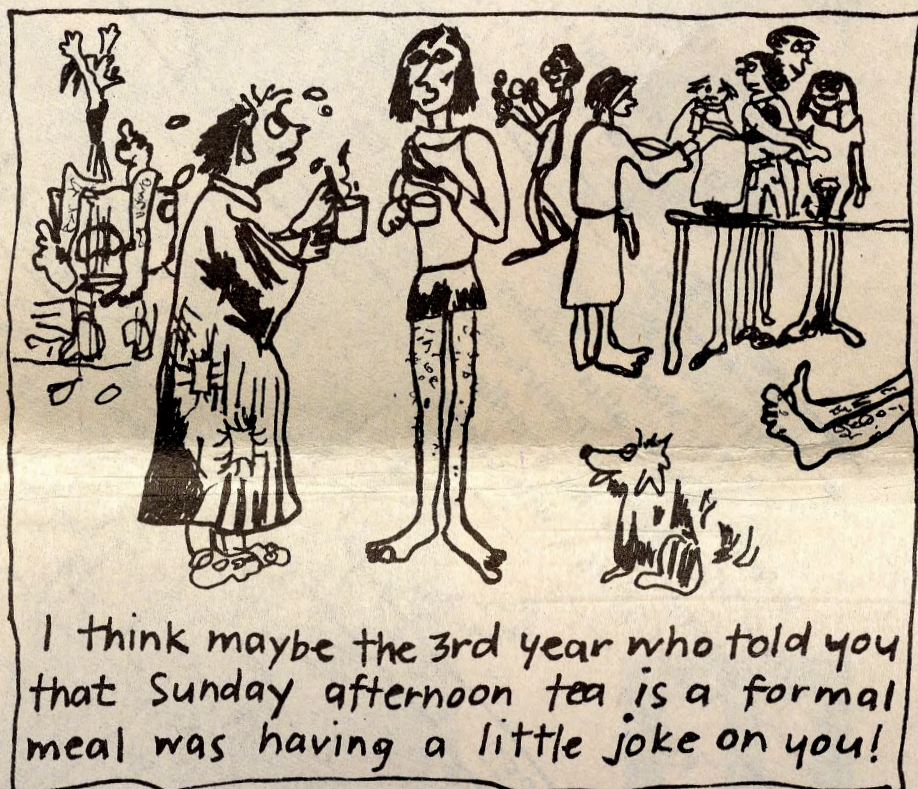 I think maybe the 3rd year who told you
that Sunday afternoon tea is a formal
meal was having a little joke on you!